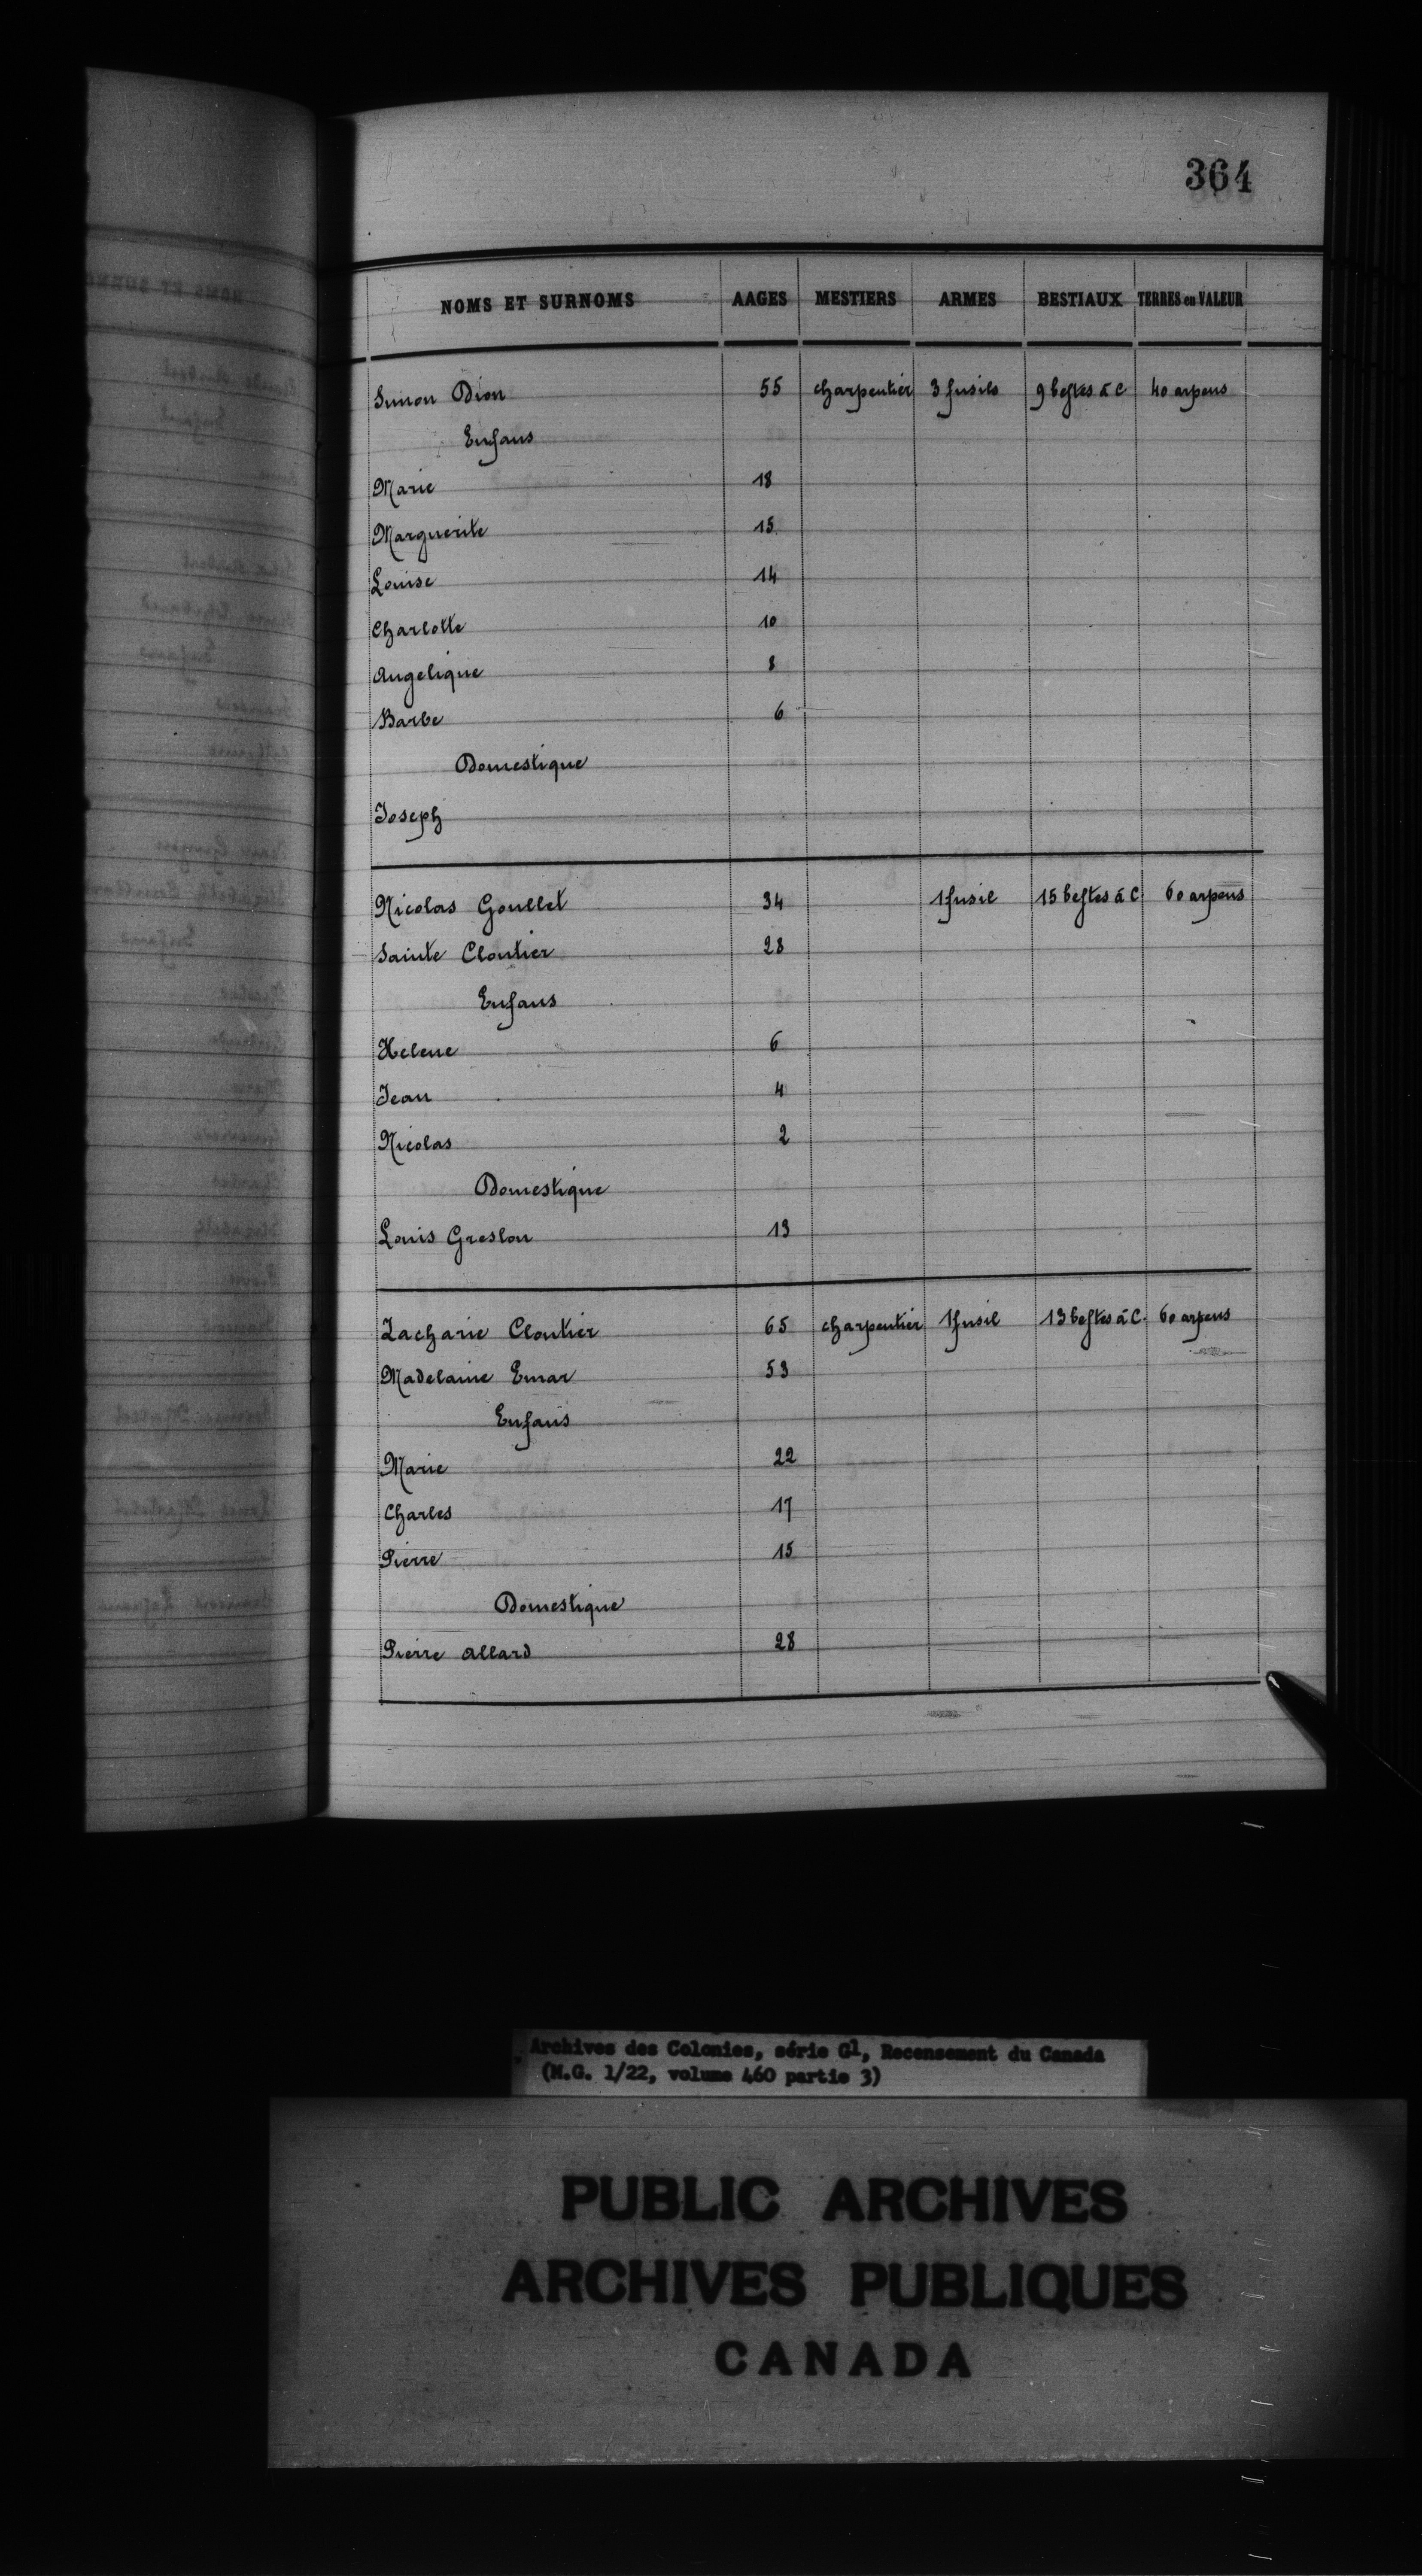 364
NOMS ET SURNOMS AAGES MESTIERS ARMES BESTIAUX TERRES en VALEUR
Simon Dion 55 charpentier 3 fusils 9 bestes à C 40 arpens
Enfans
Marie 18
Marguerite 15
Louise 14
Charlotte 10
Angelique 8
Barbe 6
Domestique
Joseph
Nicolas Goullet 34 1 fusil 15 bestes à C. 60 arpens
Sainte Cloutier 28
Enfans
Helene 6
Jean 4
Nicolas 2
Domestique
Louis Greslon 13
Zacharie Cloutier 65 charpentier 1 fusil 13 bestes à C. 60 arpens
Madelaine Emar 53
Enfans
Marie 22
Charles 17
Pierre 15
Domestique
Pierre Allard 28
Archives des Colonies, série G1, Recensement du Canada
(M.G. 1/22, volume 460 partie 3)
PUBLIC ARCHIVES
ARCHIVES PUBLIQUES
CANADA